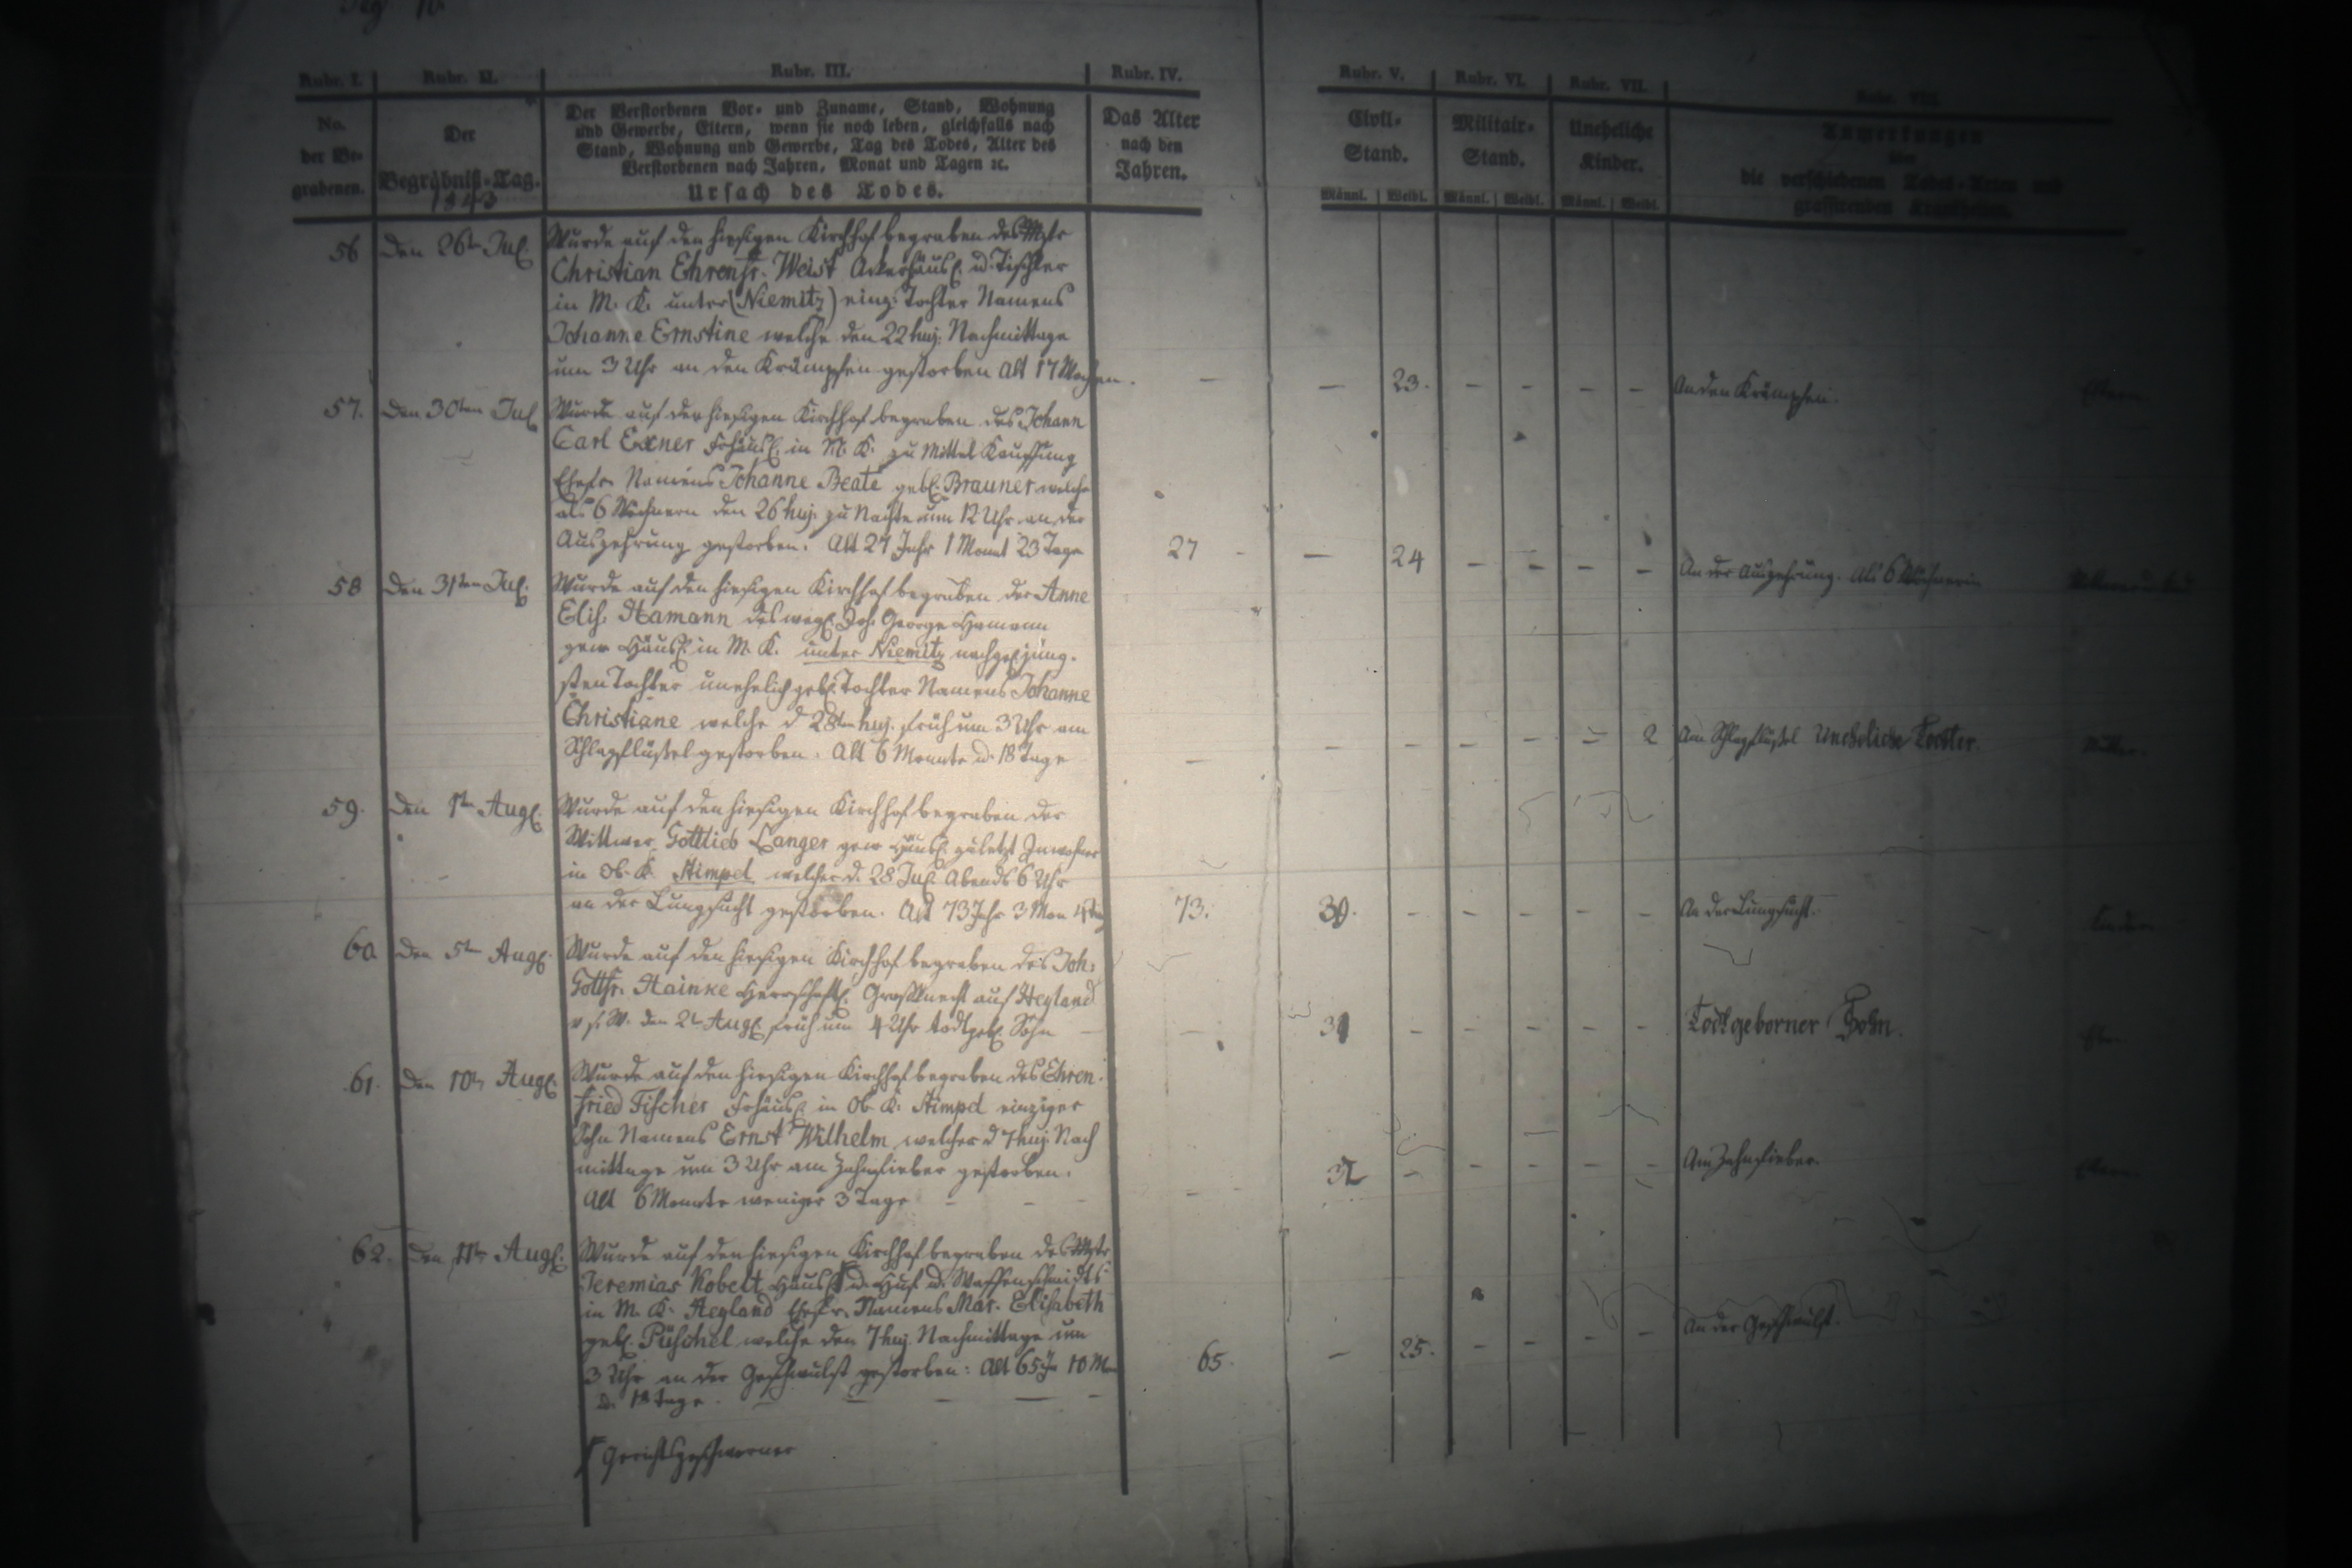 Pag 10.
Rubr. I. Rubr. II. Rubr. III. Rubr. IV. Rubr. V. Rubr. VI. Rubr. VII. Rubr. VIII.
No. der Be- grabenen.
Der Begräbniß-Tag. 1843
Der Verstorbenen Vor- und Zuname, Stand, Wohnung
und Gewerbe, Eltern, wenn sie noch leben, gleichfalls nach
Stand, Wohnung und Gewerbe, Tag des Todes, Alter des
Verstorbenen nach Jahren, Monat und Tagen ꝛc.
Ursach des Todes.
Das Alter nach den Jahren.
Civil- Stand. Männl. Weibl.
Militair- Stand. Männl. Weibl.
Uneheliche Kinder. Männl. Weibl.
Anmerkungen
von
die verschiedenen Todes-Arten und
grassirenden Krankheiten.
56 Den 26ten Jul. Wurde auf den hiesigen Kirchhof begraben des Mstr
Christian Ehrenfr. Weist Ackerhäusl. u. Tischler
in M. K. unter (Niemitz) einz: Tochter Namens
Johanne Ernstine welche den 22 huj: Nachmittage
um 3 Uhr an den Krämpfen gestorben Alt 17 Wochen. – – 23. – – – – An den Krämpfen. Eltern
57. Den 30ten Jul Wurde auf den hiesigen Kirchhof begraben des Johann
Carl Exner Frhäusl. in M. K. zu Mittel Kauffung
Ehefr. Namens Johanne Beate gebl. Brauner welche
als 6 Wöchnern den 26 huj. zu Nachte um 12 Uhr an der
Auszehrung gestorben. Alt 27 Jahr 1 Monat 23 Tage 27 – – 24 – – – – An der Auszehrung. Als 6 Wöchnerin
58 Den 31ten Jul. Wurde auf den hiesigen Kirchhof begraben der Anne
Elis. Hamann des wegl. Joh. George Hamann
gew Häusl. in M. K. unter Niemitz nachgel. jüng-
sten Tochter unehelich gebl. Tochter Namens Johanne
Christiane welche d 28ten huj. früh um 3 Uhr am
Schlagflüßel gestorben. Alt 6 Monate u. 18 Tage – – – – – – 2 Am Schlagflüßel Uneheliche Tochter. Mutter.
59. Den 1ten Augl. Wurde auf den hiesigen Kirchhof begraben der
Wittwer Gottlieb Langer gew Häusl. zuletzt Inwohner
in Ob. K. Stimpel welcher d. 28 Jul. Abends 6 Uhr
an der Lungsucht gestorben. Alt 73 Jahr 3 Mon 73. 30. – – – – – An der Lungsucht. Kinder.
60 Den 5ten Augl. Wurde auf den hiesigen Kirchhof begraben des Joh:
Gottfr. Hainke Herrschaftl. Großknecht auf Heyland
den 2t Augl. früh um 4 Uhr todtgebl. Sohn – – 31 – – – – – Todtgeborner Sohn.
61. Den 10ten Augl. Wurde auf den hiesigen Kirchhof begraben des Ehren-
fried Fischer Frhäusl. in Ob K: Stimpel einziger
Sohn Namens Ernst Wilhelm welcher d 7 huj. Nach
mittage um 3 Uhr am Zahnfieber gestorben.
Alt 6 Monate weniger 3 Tage – – – – – 32 – – – – – Am Zahnfieber. Eltern
62. Den 11ten Augl. Wurde auf den hiesigen Kirchhof begraben des Mstr
Jeremias Kobelt Häusl. u. Huf u. Waffenschmidts
in M. K. Heyland Ehefr. Namens Mar. Elisabeth
gebl. Püschel welche den 7 huj. Nachmittage um
3 Uhr an der Geschwulst gestorben: Alt 65 J 10 M 65. – 25. – – – – An der Geschwulst.
u. 18 Tage. – – – – –
Gerichtsgeschworner